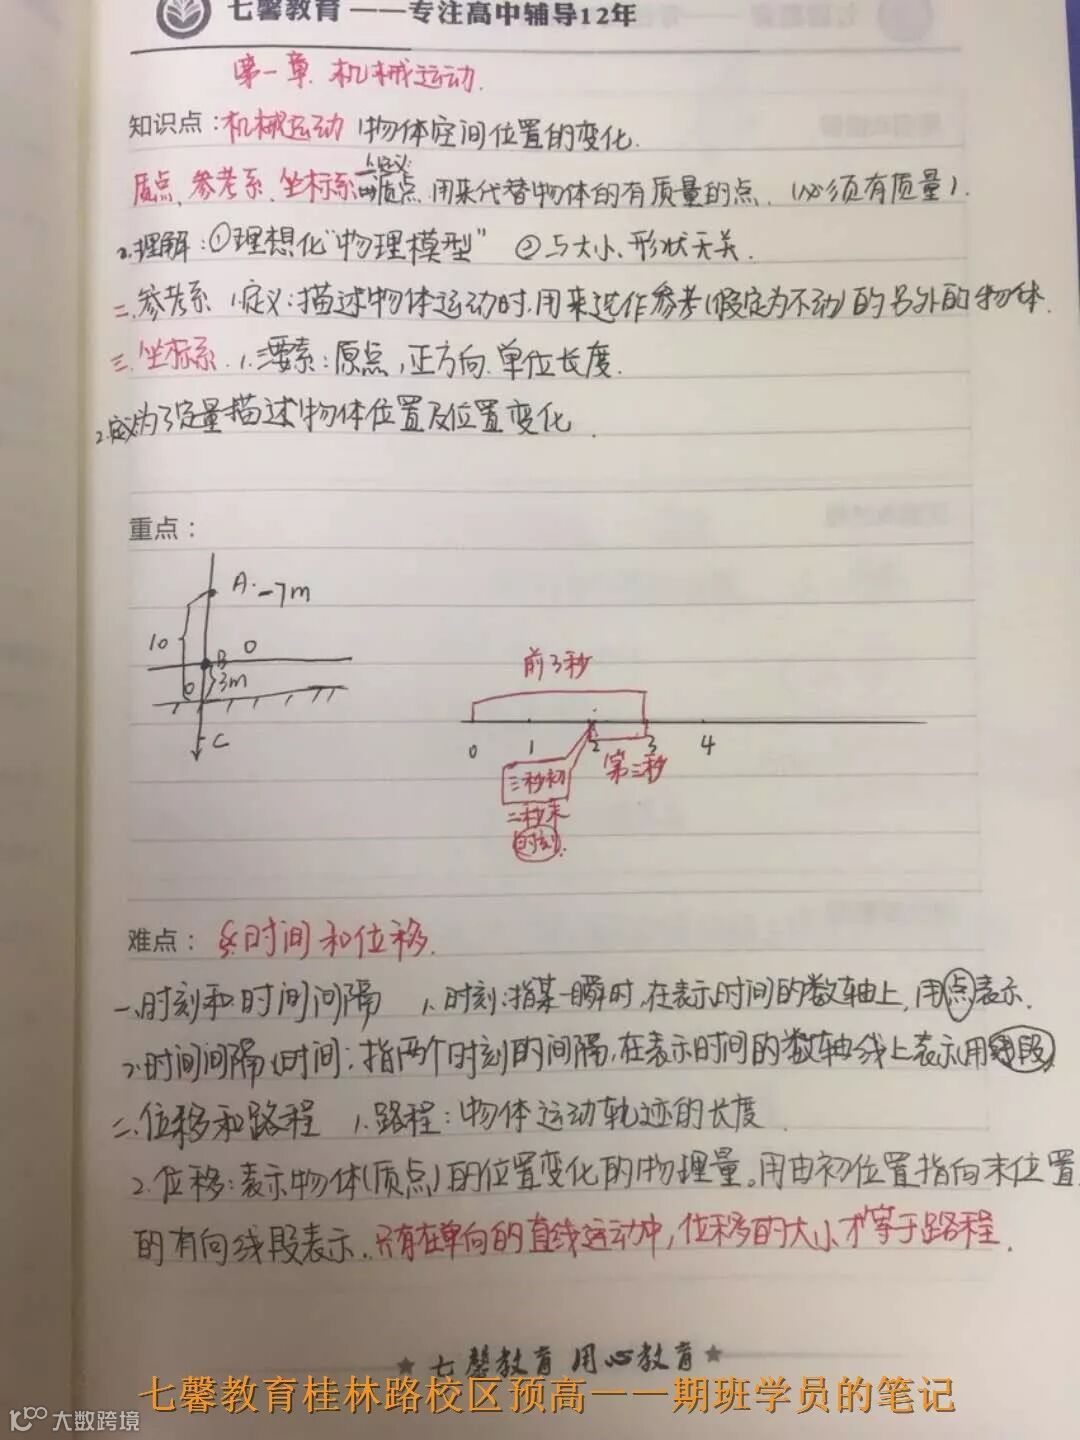 七馨教育 ——专注高中辅导12年
第一章. 机械运动.
知识点：机械运动 1物体空间位置的变化.
1.定义:
质点、参考系、坐标系 一质点 用来代替物体的有质量的点. (必须有质量).
2.理解：①理想化"物理模型" ②与大小、形状无关.
二.参考系 1.定义：描述物体运动时,用来选作参考(假定为不动)的另外的物体.
三.坐标系. 1.三要素：原点,正方向.单位长度.
2.意义为了定量描述物体位置及位置变化.
重点：
A. -7m
10
B 0
0 3m
C
前3秒
0 1 2 3 4
三秒初 第三秒
二秒末
时刻.
难点： 时间和位移.
一.时刻和时间间隔 1.时刻:指某一瞬时,在表示时间的数轴上,用点表示.
2.时间间隔(时间：指两个时刻的间隔,在表示时间的数轴线上表示(用线段)
二.位移和路程 1.路程：物体运动轨迹的长度.
2.位移:表示物体(质点)的位置变化的物理量。用由初位置指向末位置
的有向线段表示.只有在单向的直线运动中,位移的大小才等于路程.
★ 七馨教育 用心教育 ★
七馨教育桂林路校区预高——期班学员的笔记
大数跨境